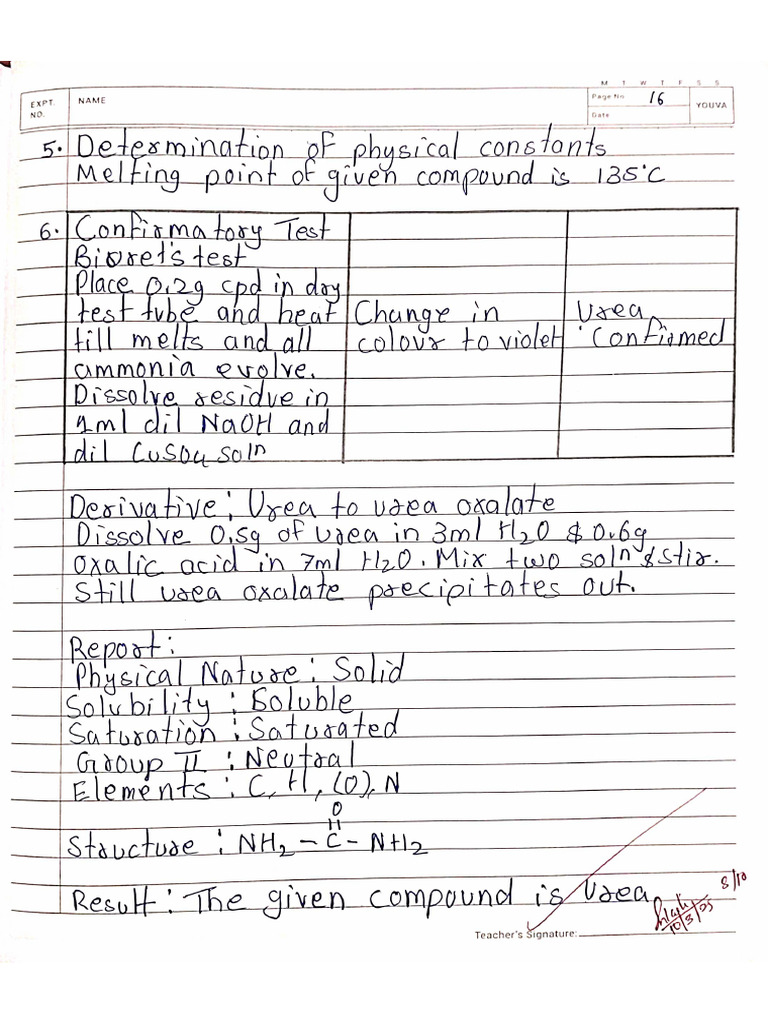 M T W T F S S
EXPT. NO.
NAME
Page No. 16
Date
YOUVA
5. Determination of physical constants
Melting point of given compound is 135°C
6. Confirmatory Test
Biuret's test
Place 0.2g cpd in dry
test tube and heat
till melts and all
ammonia evolve.
Dissolve residue in
1ml dil NaOH and
dil CuSO4 soln
Change in
colour to violet
Urea
Confirmed
Derivative: Urea to urea oxalate
Dissolve 0.5g of urea in 3ml H2O & 0.6g
oxalic acid in 7ml H2O. Mix two soln & stir.
Still urea oxalate precipitates out.
Report:
Physical Nature: Solid
Solubility: Soluble
Saturation: Saturated
Group II: Neutral
Elements: C, H, (O), N
O
Structure: NH2 – C – NH2
Result: The given compound is Urea
8/10
10/3/25
Teacher's Signature: